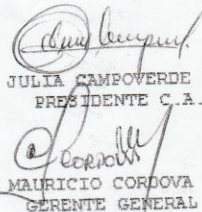 JULIA CAMPOVERDE
PRESIDENTE C.A.
MAURICIO CORDOVA
GERENTE GENERAL